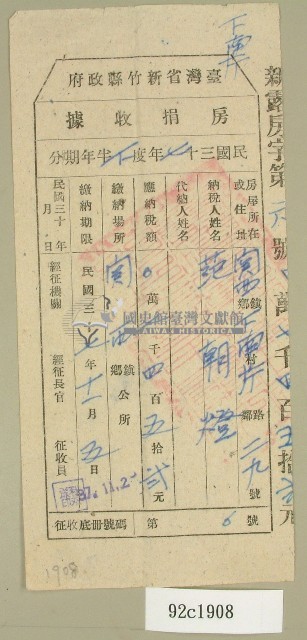 下南片
臺灣省新竹縣政府
房捐收據
民國三十七年度下半年期分
房屋所在或住址 關西鎮鄉 南片村 路鄰 二九號
納稅人姓名 范朝燈
代納人姓名
應納稅額 0萬 千四百五拾貳元
繳納場所 關西鎮鄉公所
繳納期限 民國三十六年十一月五日
民國三十 年 月 日
經征機關
經征長官
征收員
37.11.2
征收底冊號碼第 6 號
新露房字第 六號
萬 千四百五拾貳元
國史館臺灣文獻館
TAIWAN HISTORICA
1908
92c1908